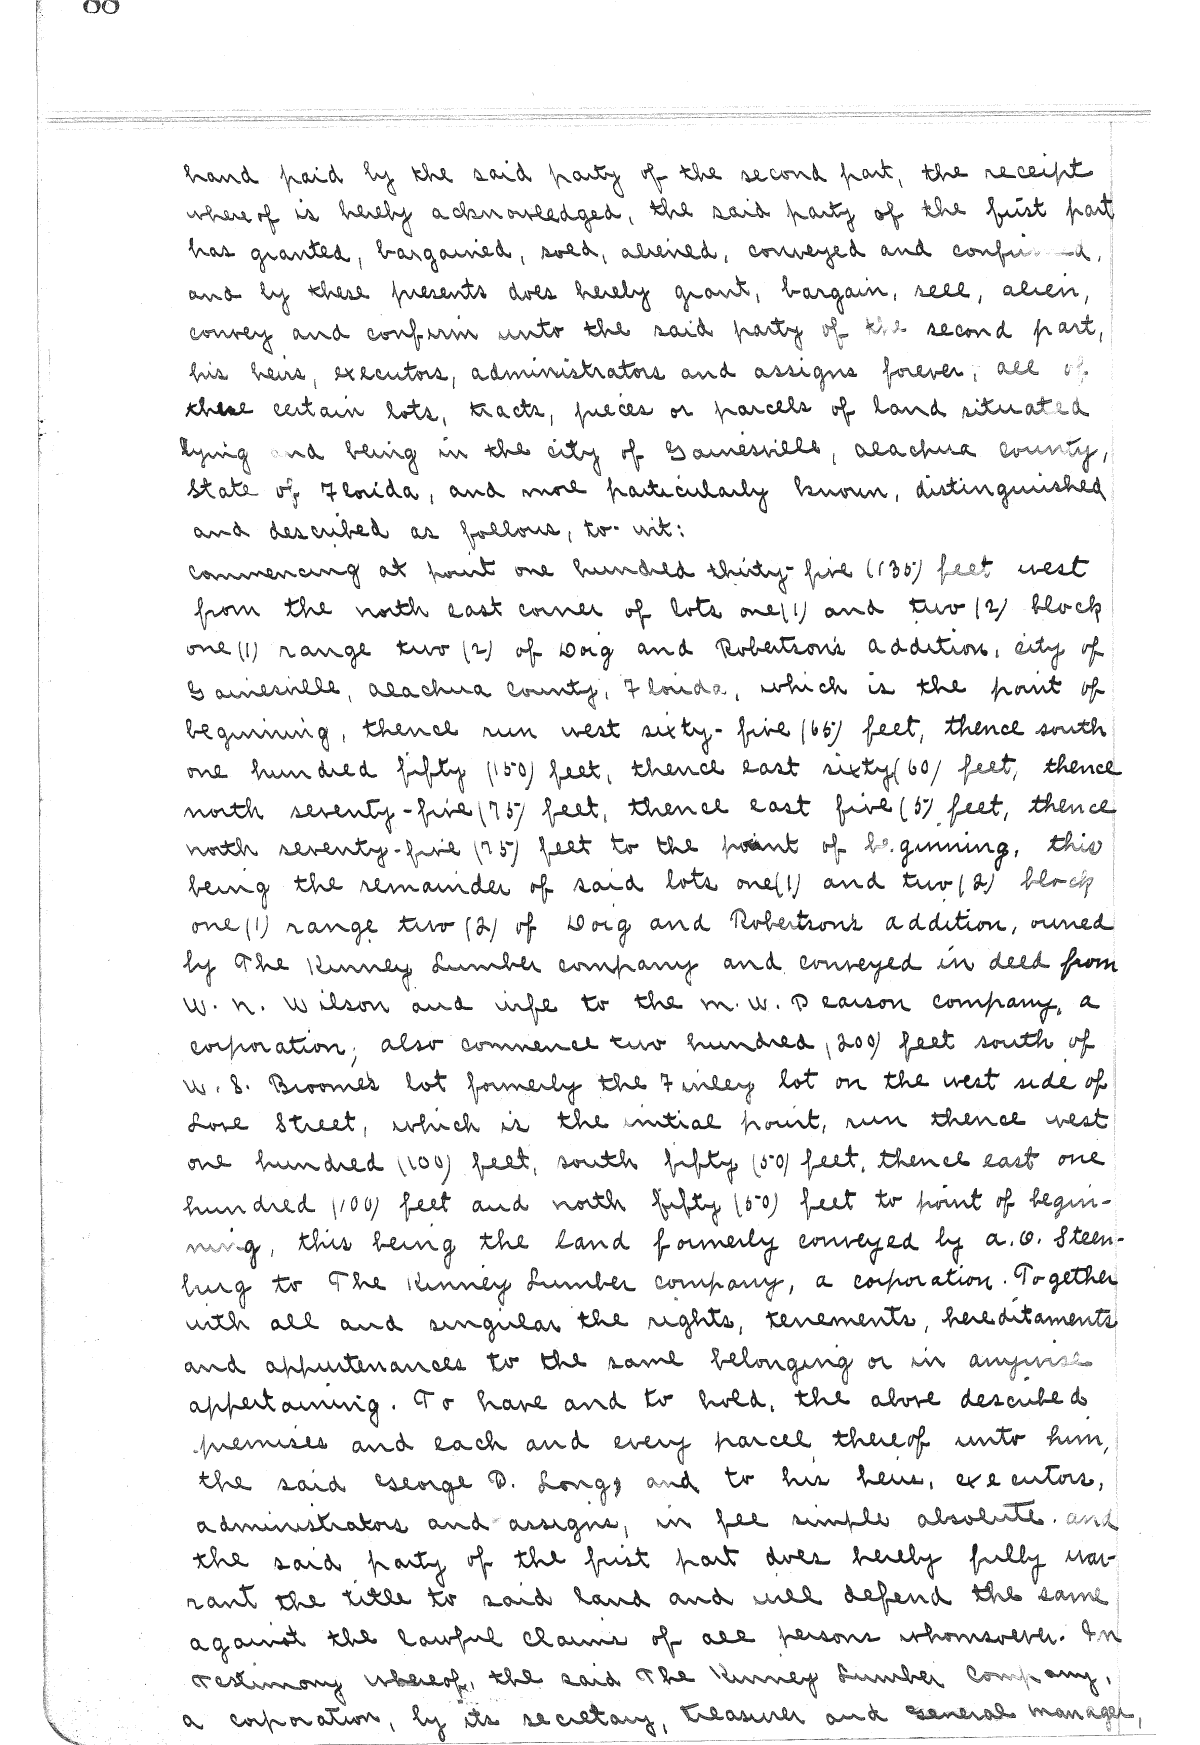 88
hand paid by the said party of the second part, the receipt
whereof is hereby acknowledged, the said party of the first part
has granted, bargained, sold, aliened, conveyed and confirmed,
and by these presents does hereby grant, bargain, sell, alien,
convey and confirm unto the said party of the second part,
his heirs, executors, administrators and assigns forever, all of
these certain lots, tracts, pieces or parcels of land situated
lying and being in the city of Gainesville, Alachua County,
State of Florida, and more particularly known, distinguished
and described as follows, to-wit:
Commencing at point one hundred thirty-five (135) feet west
from the north east corner of lots one (1) and two (2) block
one (1) range two (2) of Doig and Robertson's addition, city of
Gainesville, Alachua County, Florida, which is the point of
beginning, thence run west sixty-five (65) feet, thence south
one hundred fifty (150) feet, thence east sixty (60) feet, thence
north seventy-five (75) feet, thence east five (5) feet, thence
north seventy-five (75) feet to the point of beginning, this
being the remainder of said lots one (1) and two (2) block
one (1) range two (2) of Doig and Robertson's addition, owned
by The Kinney Lumber Company and conveyed in deed from
W. N. Wilson and wife to the M. W. Pearson Company, a
corporation; also commence two hundred (200) feet south of
W. S. Broome's lot formerly the Finley lot on the west side of
Love Street, which is the initial point, run thence west
one hundred (100) feet, south fifty (50) feet, thence east one
hundred (100) feet and north fifty (50) feet to point of begin-
ning, this being the land formerly conveyed by A. O. Steen-
burg to The Kinney Lumber Company, a corporation. Together
with all and singular the rights, tenements, hereditaments
and appurtenances to the same belonging or in anywise
appertaining. To have and to hold, the above described
premises and each and every parcel thereof unto him,
the said George D. Long, and to his heirs, executors,
administrators and assigns, in fee simple absolute. And
the said party of the first part does hereby fully war-
rant the title to said land and will defend the same
against the lawful claims of all persons whomsoever. In
Testimony whereof, the said The Kinney Lumber Company,
a corporation, by its secretary, treasurer and General Manager,